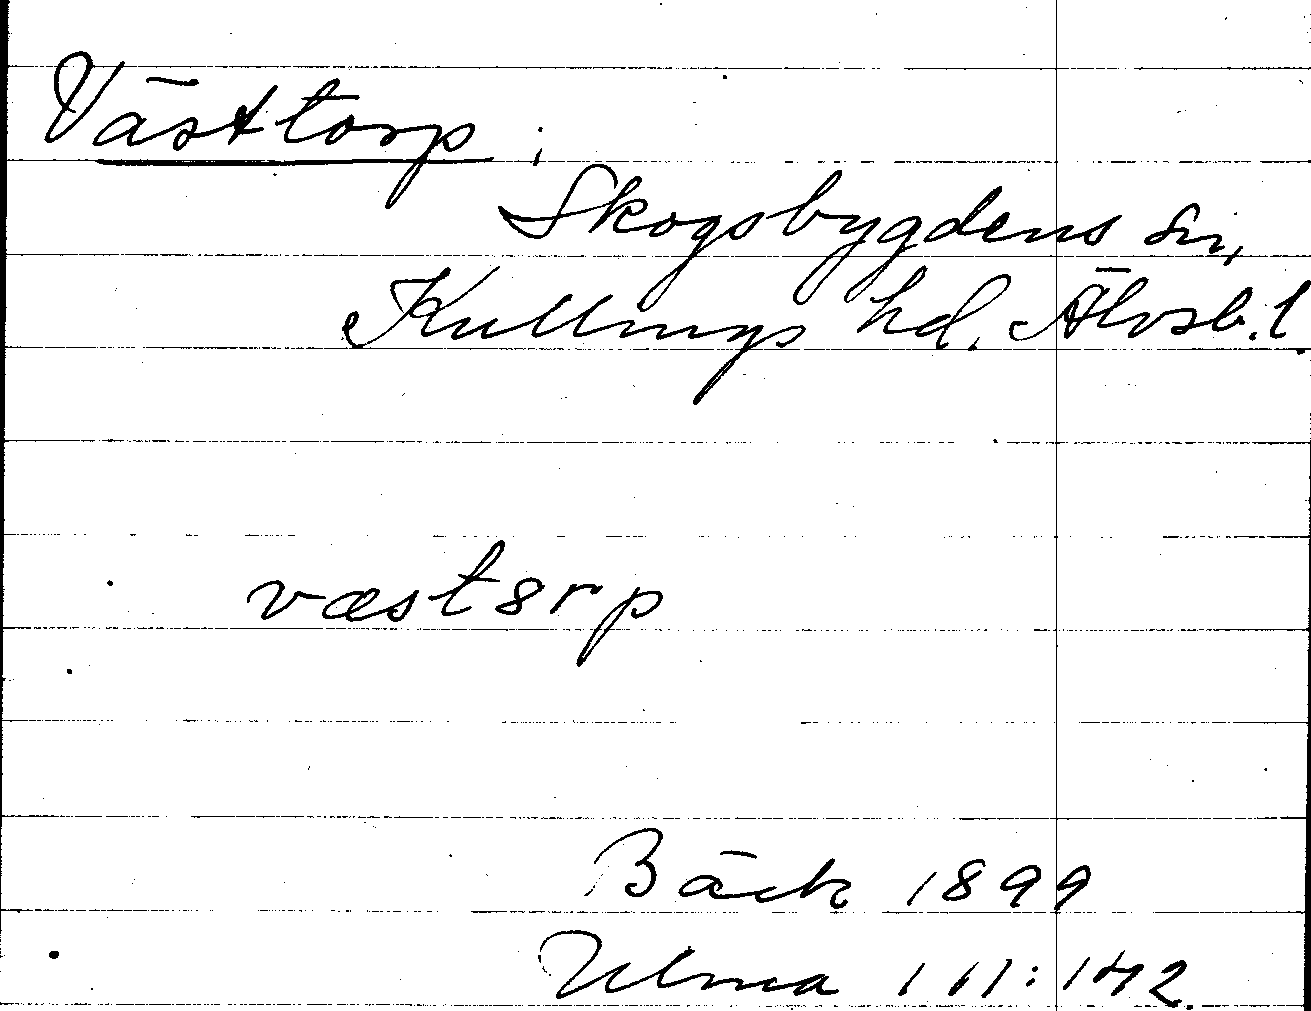 Västtorp ;
Skogsbygdens sn,
Kullings hd. Älvsb. l.
væst8rp
Bäck 1899
Ulma 111:142.